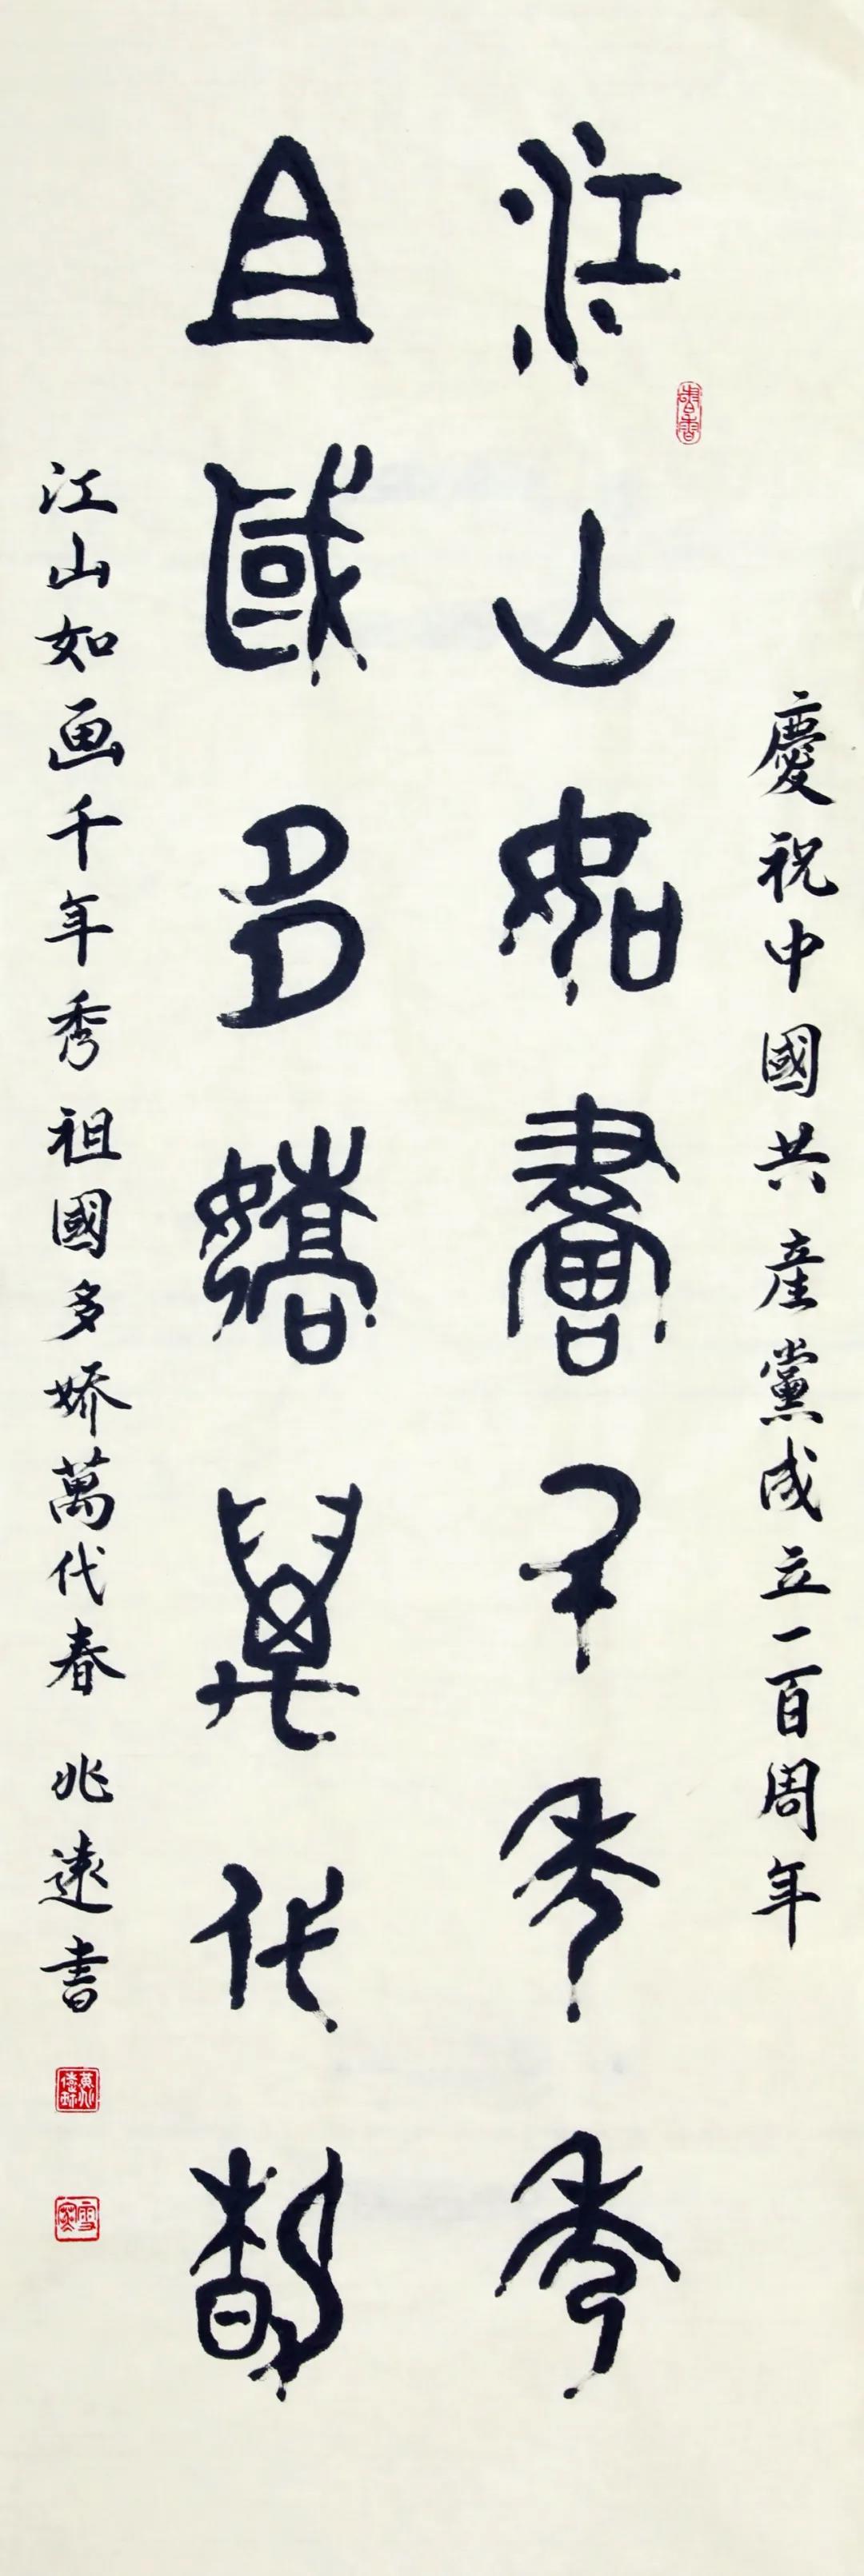 慶祝中國共産黨成立一百周年
江山如畫千年秀
且國多嬌萬代春
江山如画千年秀祖國多娇萬代春 兆遠書